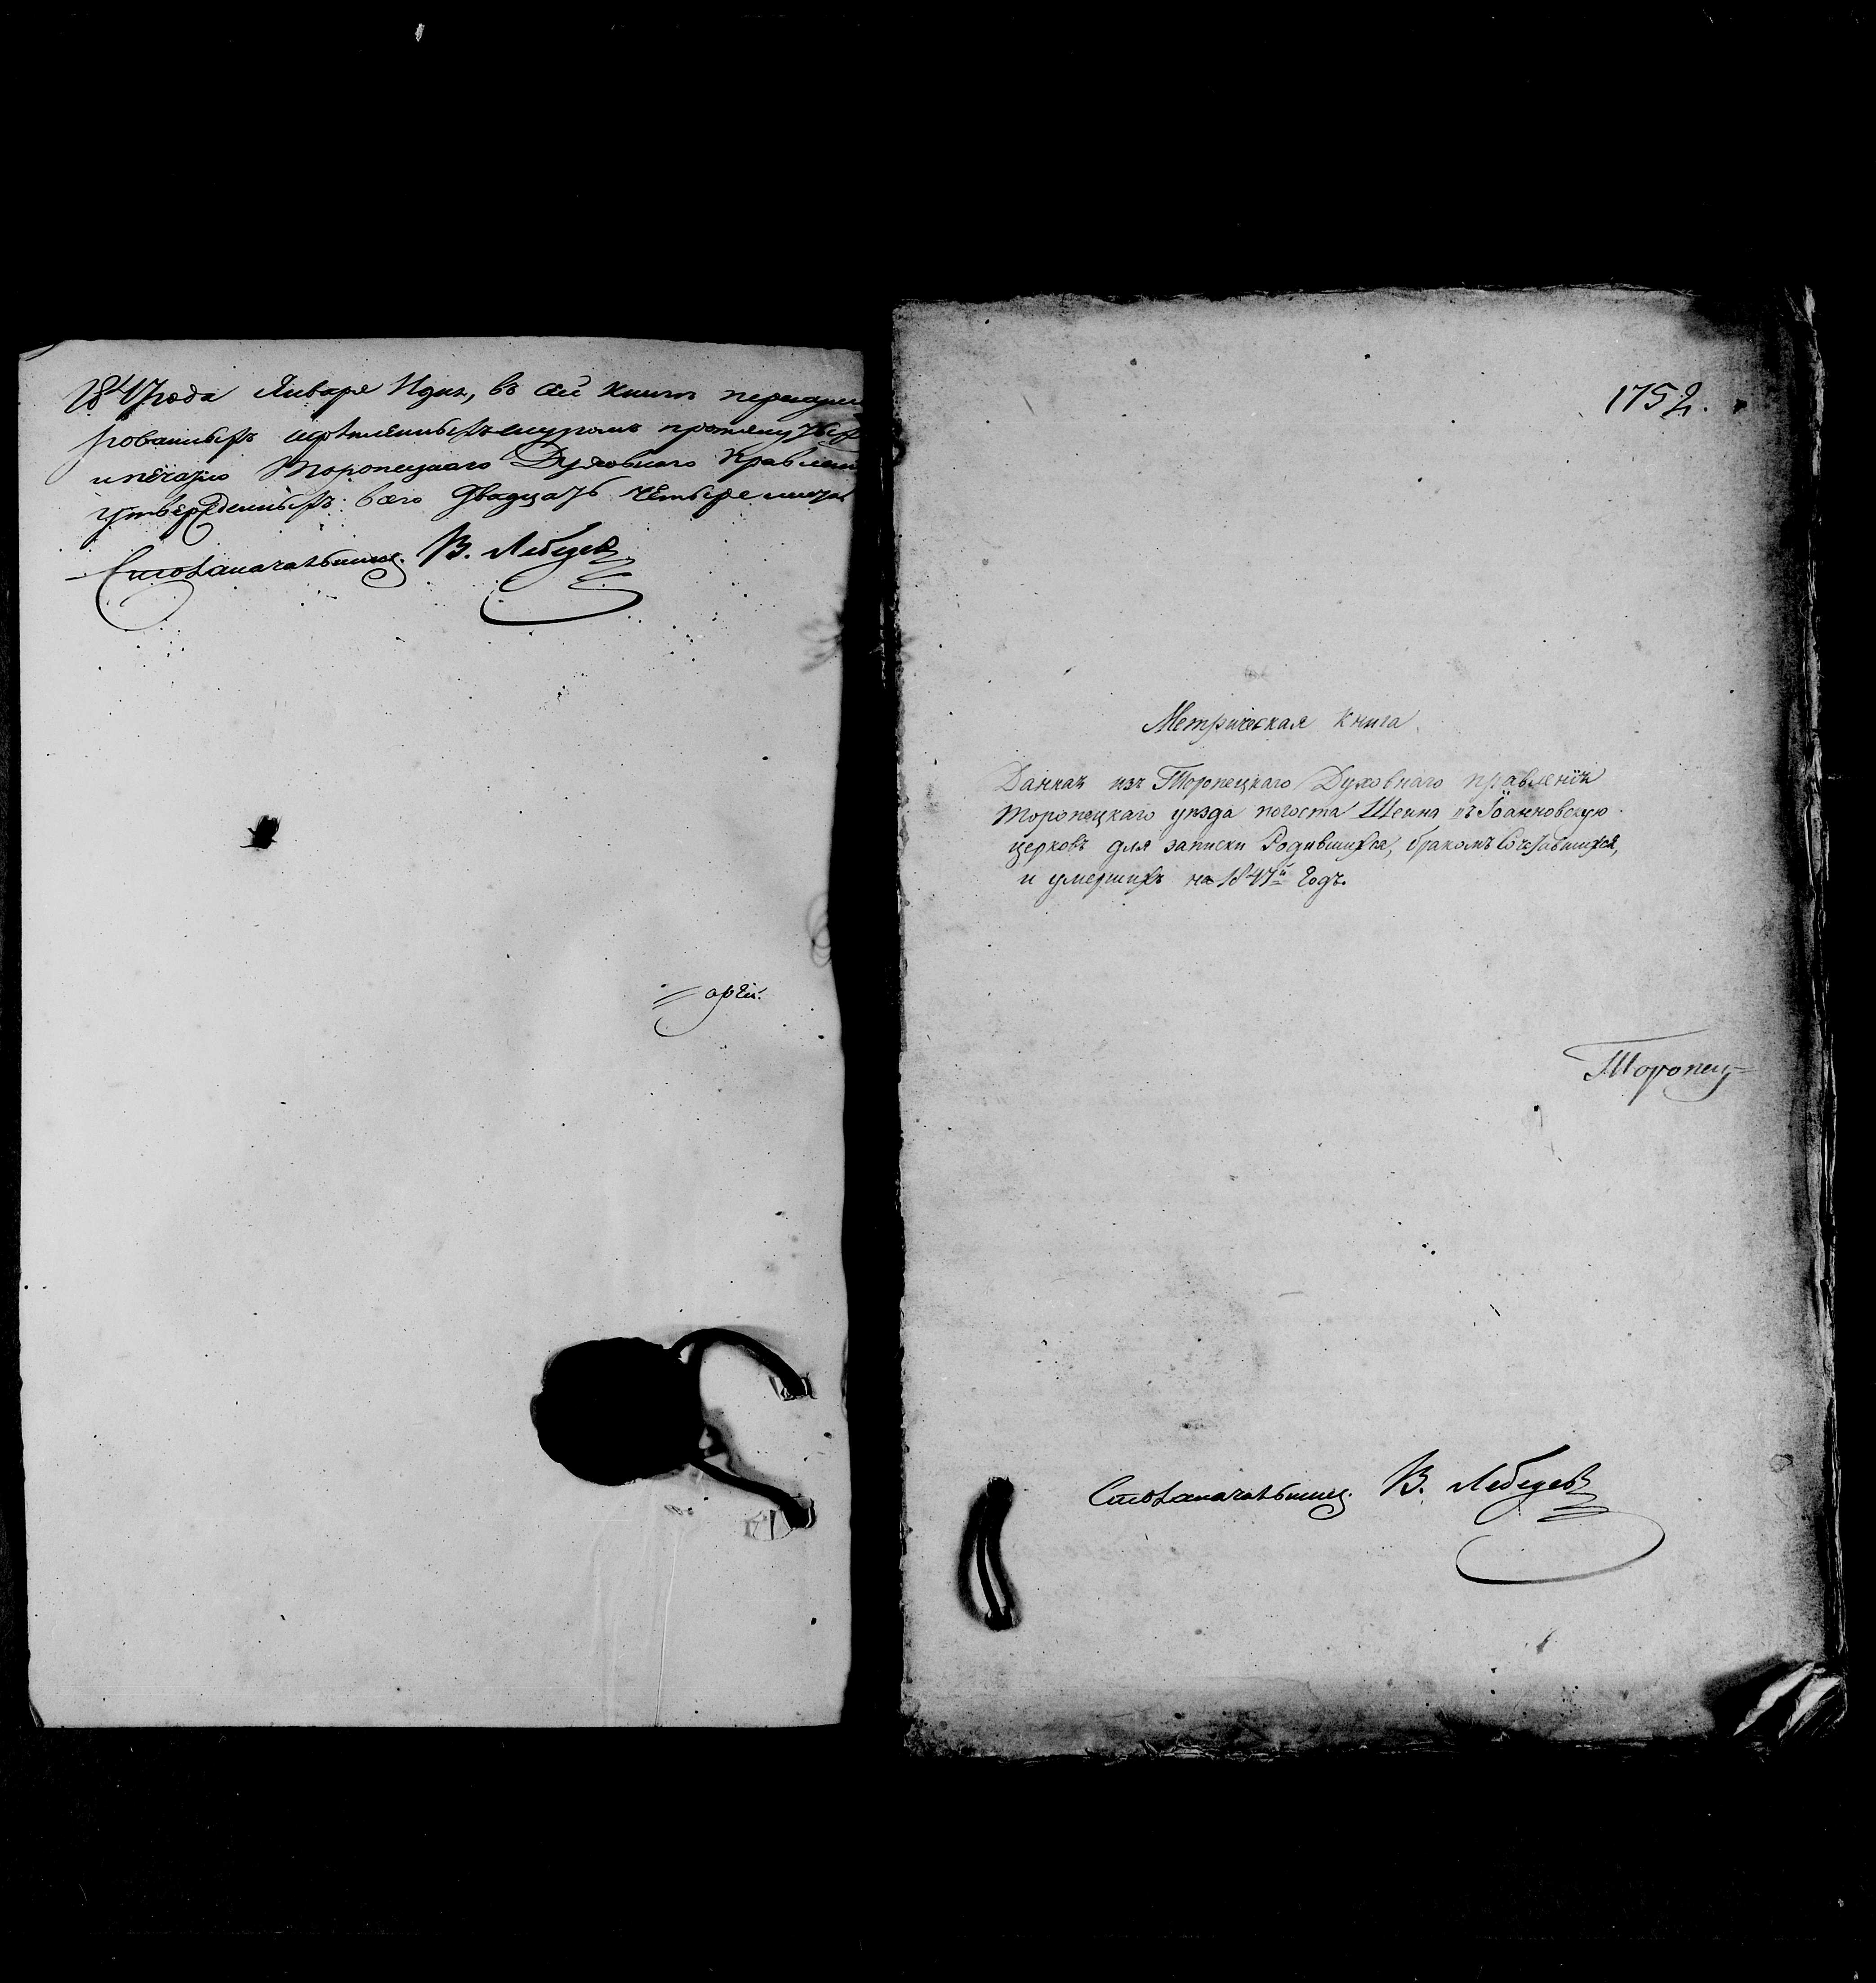 1847 года Января 11 дня, въ сей книге перенуме
рованныхъ шнуромъ протянутыхъ
и печатью Торопецкаго Духовнаго Правлен
утвержденныхъ: всего двадцать четыре листа
Столоначальникъ В. Лебедевъ
= орѣй.
1752.
Метрическая книга
Данная изъ Торопецкаго Духовнаго правленія
Торопецкаго уѣзда погоста Щеина въ Іоанновскую
церковь для записки Родившихся, бракомъ Сочетавшихся,
и умершихъ на 1847й Годъ.
Торопец=
Столоначальникъ В. Лебедевъ